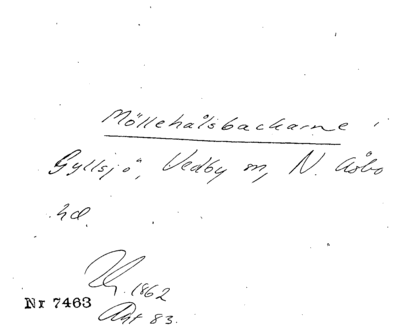 Möllehålsbackarne i
Gyllsjö, Vedby sn, N. Åsbo
hd.
1862
Nr 7463
83.